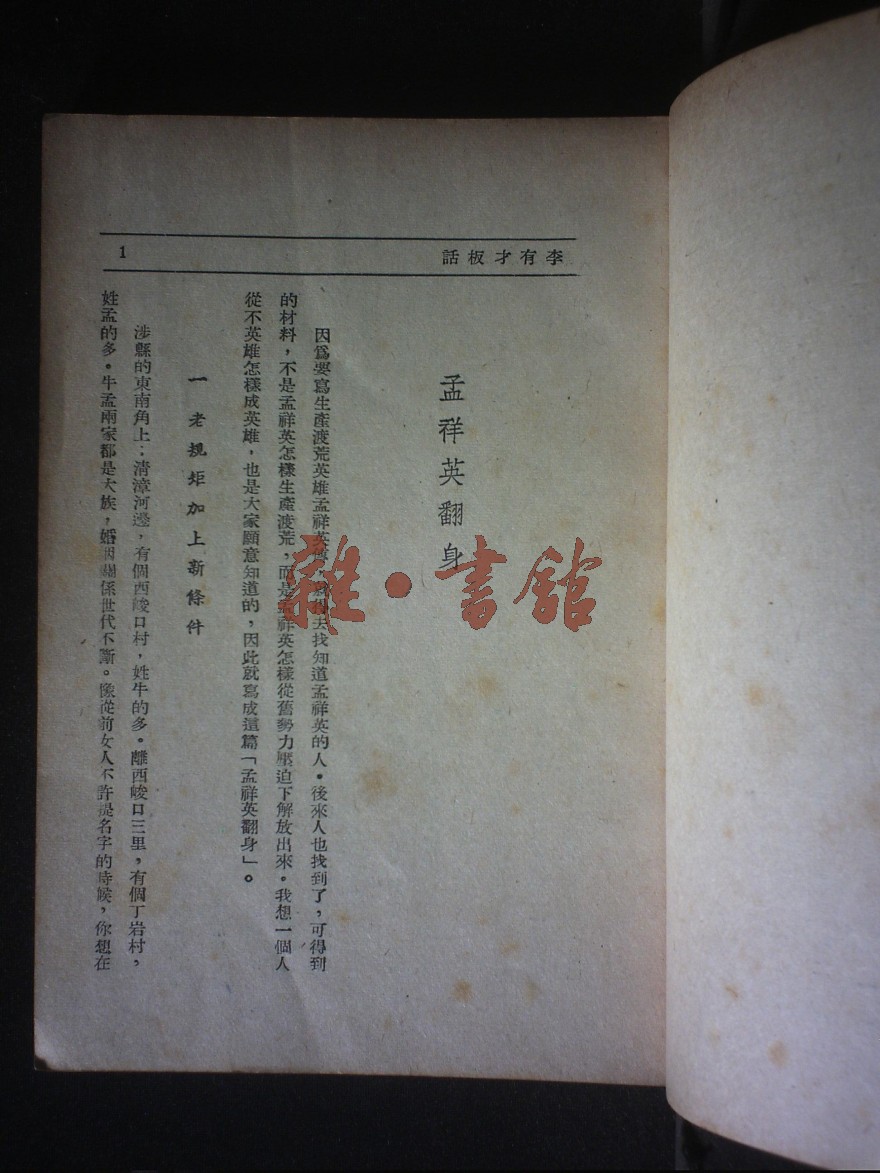 李有才板話
1
孟祥英翻身
因爲要寫生產渡荒英雄孟祥英傳，就得去找知道孟祥英的人。後來人也找到了，可得到
的材料，不是孟祥英怎樣生產渡荒，而是孟祥英怎樣從舊勢力壓迫下解放出來。我想一個人
從不英雄怎樣成英雄，也是大家願意知道的，因此就寫成這篇「孟祥英翻身」。
一 老規矩加上新條件
涉縣的東南角上：清漳河邊，有個西峧口村，姓牛的多。離西峧口三里，有個丁岩村，
姓孟的多。牛孟兩家都是大族，婚姻關係世代不斷。像從前女人不許提名字的時候，你想在
雜·書館